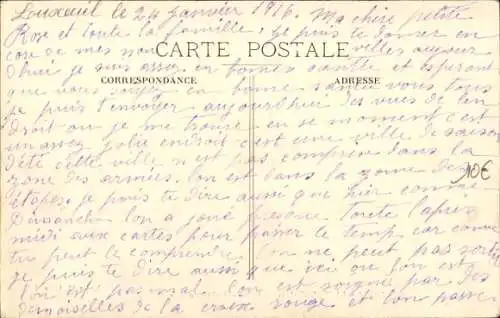 Luxeuil le 24 Janvier 1916. Ma chère petite
Rose et toute la famille, je puis te donner en
core de mes nouvelles aujour
CARTE POSTALE
d'hui je suis assez en bonne santé et esperant
CORRESPONDANCE ADRESSE
que vous soyez en bonne santé vous tous
je puis t'envoyer aujourd'hui des vues de l'en
droit ou je me trouve en se moment c'est
un assez jolie endroit c'est une ville de saison
d'été cette ville n'est pas comprise dans la
zone des armées. l'on est dans la zone des
10€
étapes je puis te dire aussi que hier comme
Dimanche l'on a joué presque toute l'apres
midi aux cartes pour passer le temp car comme
tu peut le comprendre l'on ne peut pas sortir
Je puis te dire aussi que ici ou l'on est
l'on est pas mal. l'on est soigné par des
demoiselles de la croix rouge et l'on passe